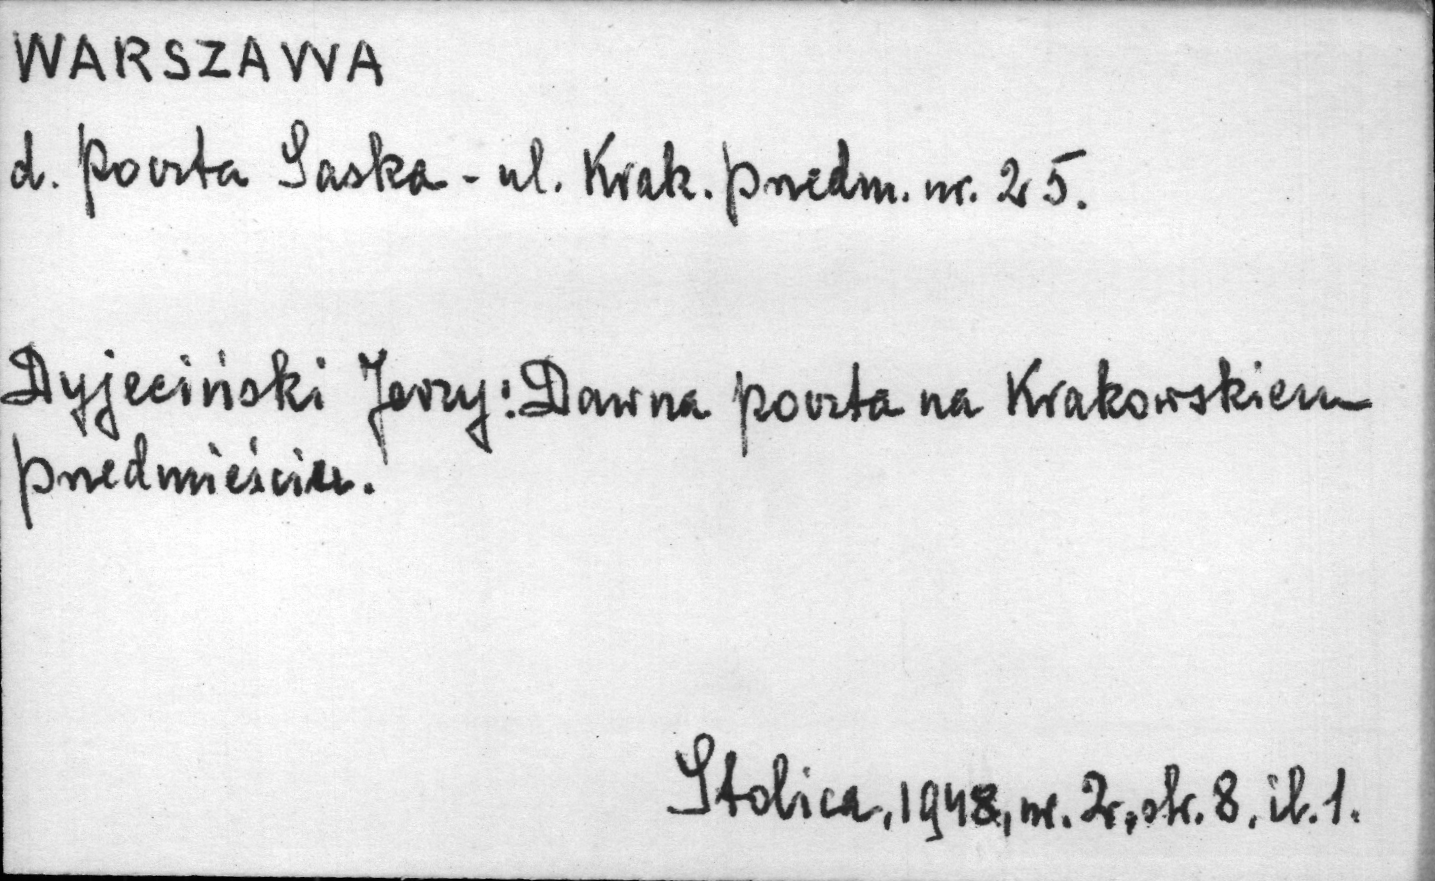 WARSZAWA
d. poczta Saska - ul. Krak. przedm. nr. 25.
Dyjeciński Jerzy: Dawna poczta na Krakowskiem
przedmieściu.
Stolica, 1948, nr. 2, str. 8, il. 1.